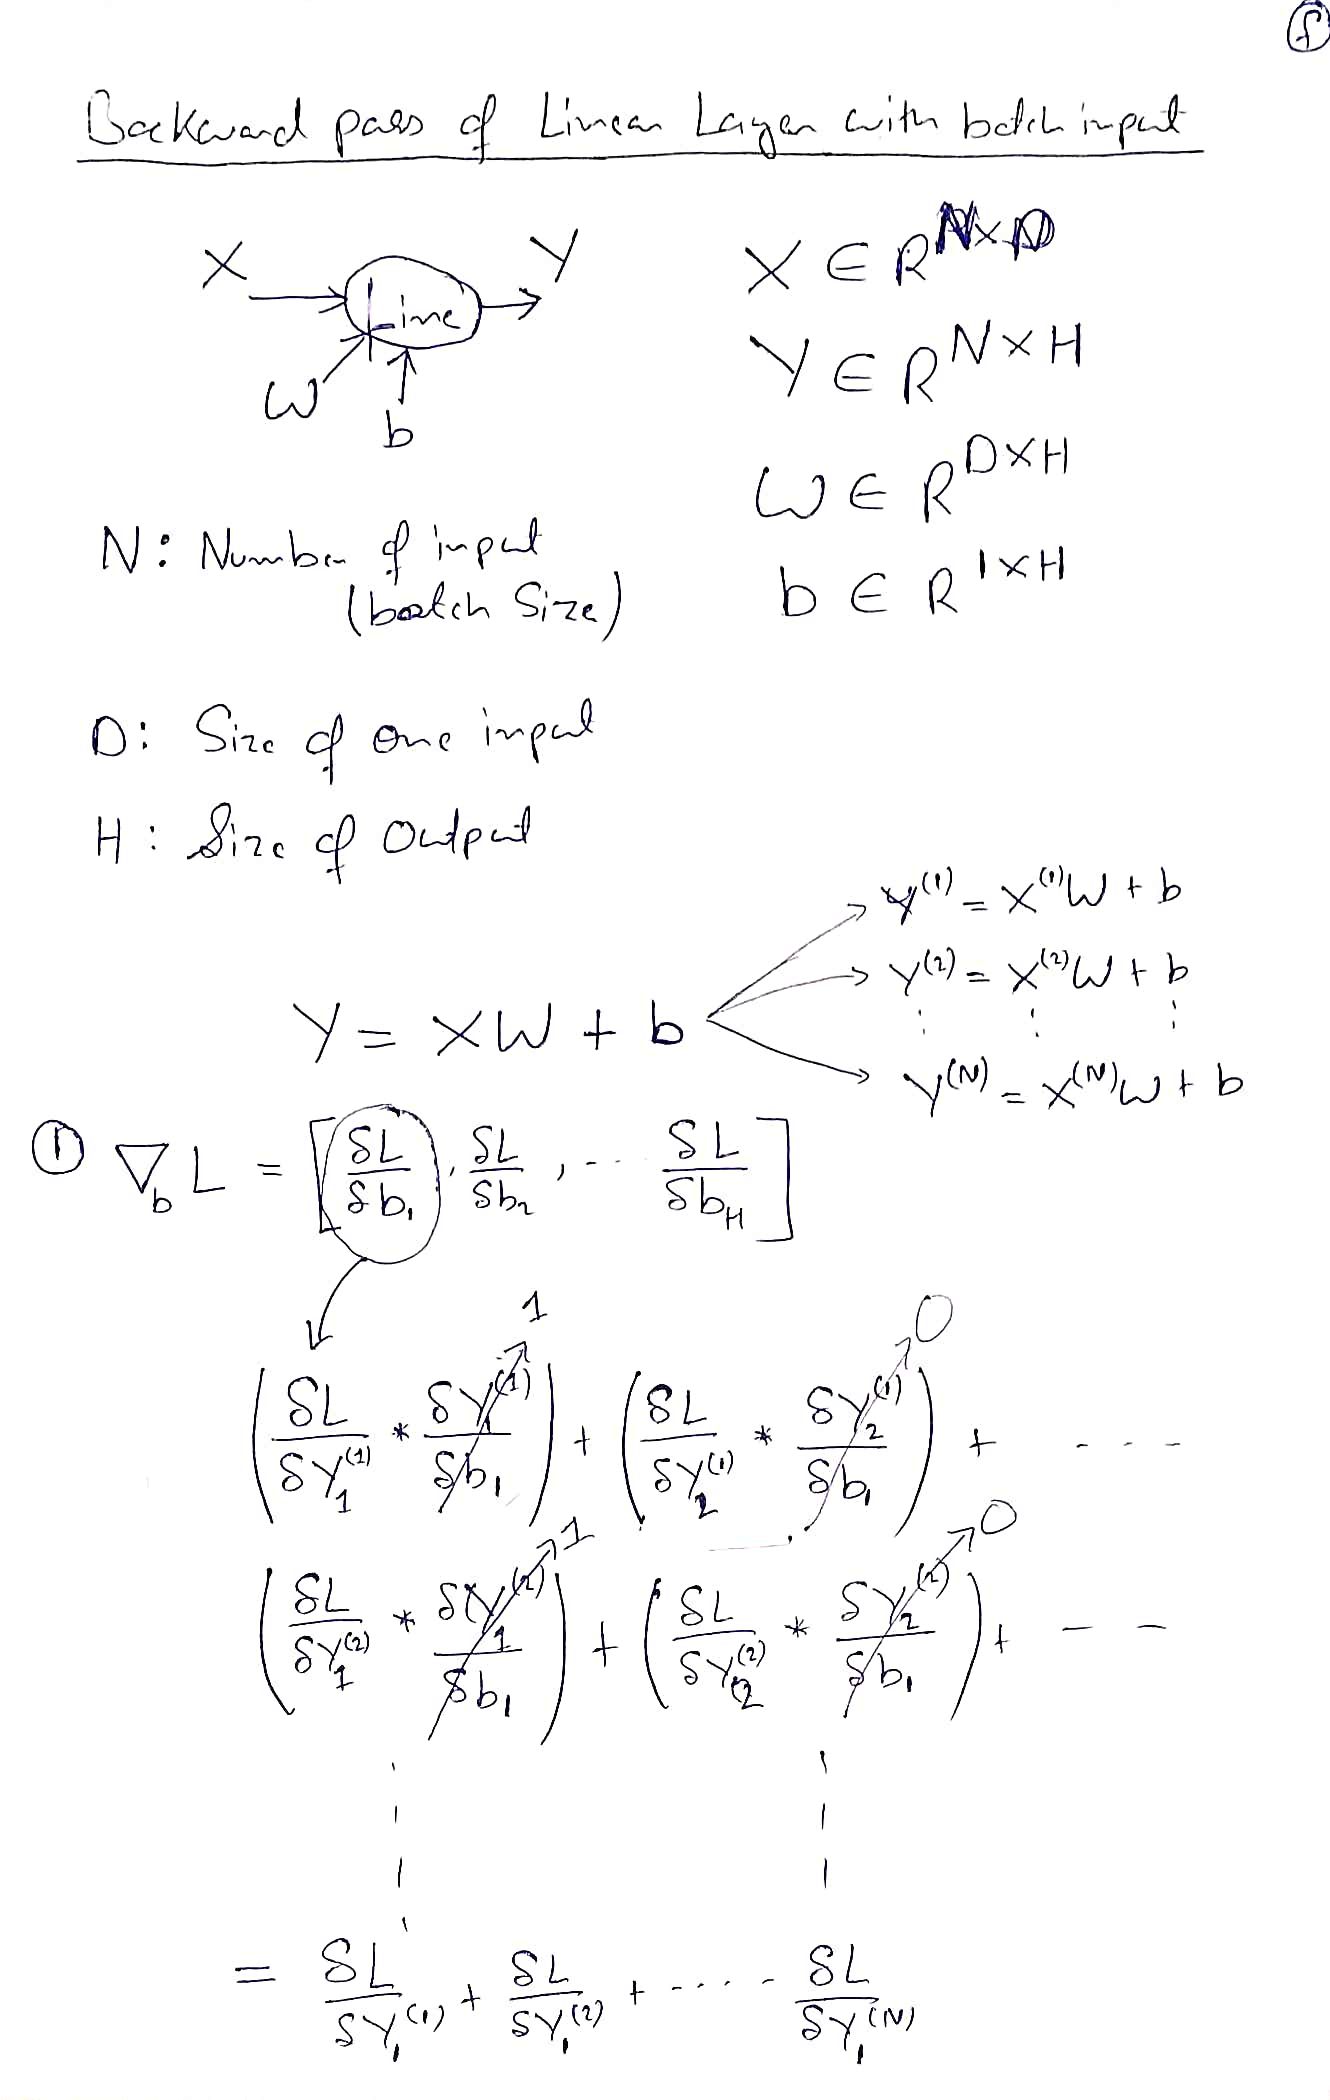 f
Backward pass of Linear Layer with batch input
X Y X ∈ R^{N×D}
Line
Y ∈ R^{N×H}
W b
W ∈ R^{D×H}
N: Number of input
(batch Size)
b ∈ R^{1×H}
D: Size of one input
H: Size of Output
Y^{(1)} = X^{(1)}W + b
Y^{(2)} = X^{(2)}W + b
Y = XW + b
Y^{(N)} = X^{(N)}W + b
① ∇_b L = [δL/δb_1, δL/δb_2, ... δL/δb_H]
1 0
(δL/δY_1^{(1)} * δY_1^{(1)}/δb_1) + (δL/δY_2^{(1)} * δY_2^{(1)}/δb_1) + - - - -
1 0
(δL/δY_1^{(2)} * δY_1^{(2)}/δb_1) + (δL/δY_2^{(2)} * δY_2^{(2)}/δb_1) + - -
= δL/δY_1^{(1)} + δL/δY_1^{(2)} + ..... δL/δY_1^{(N)}